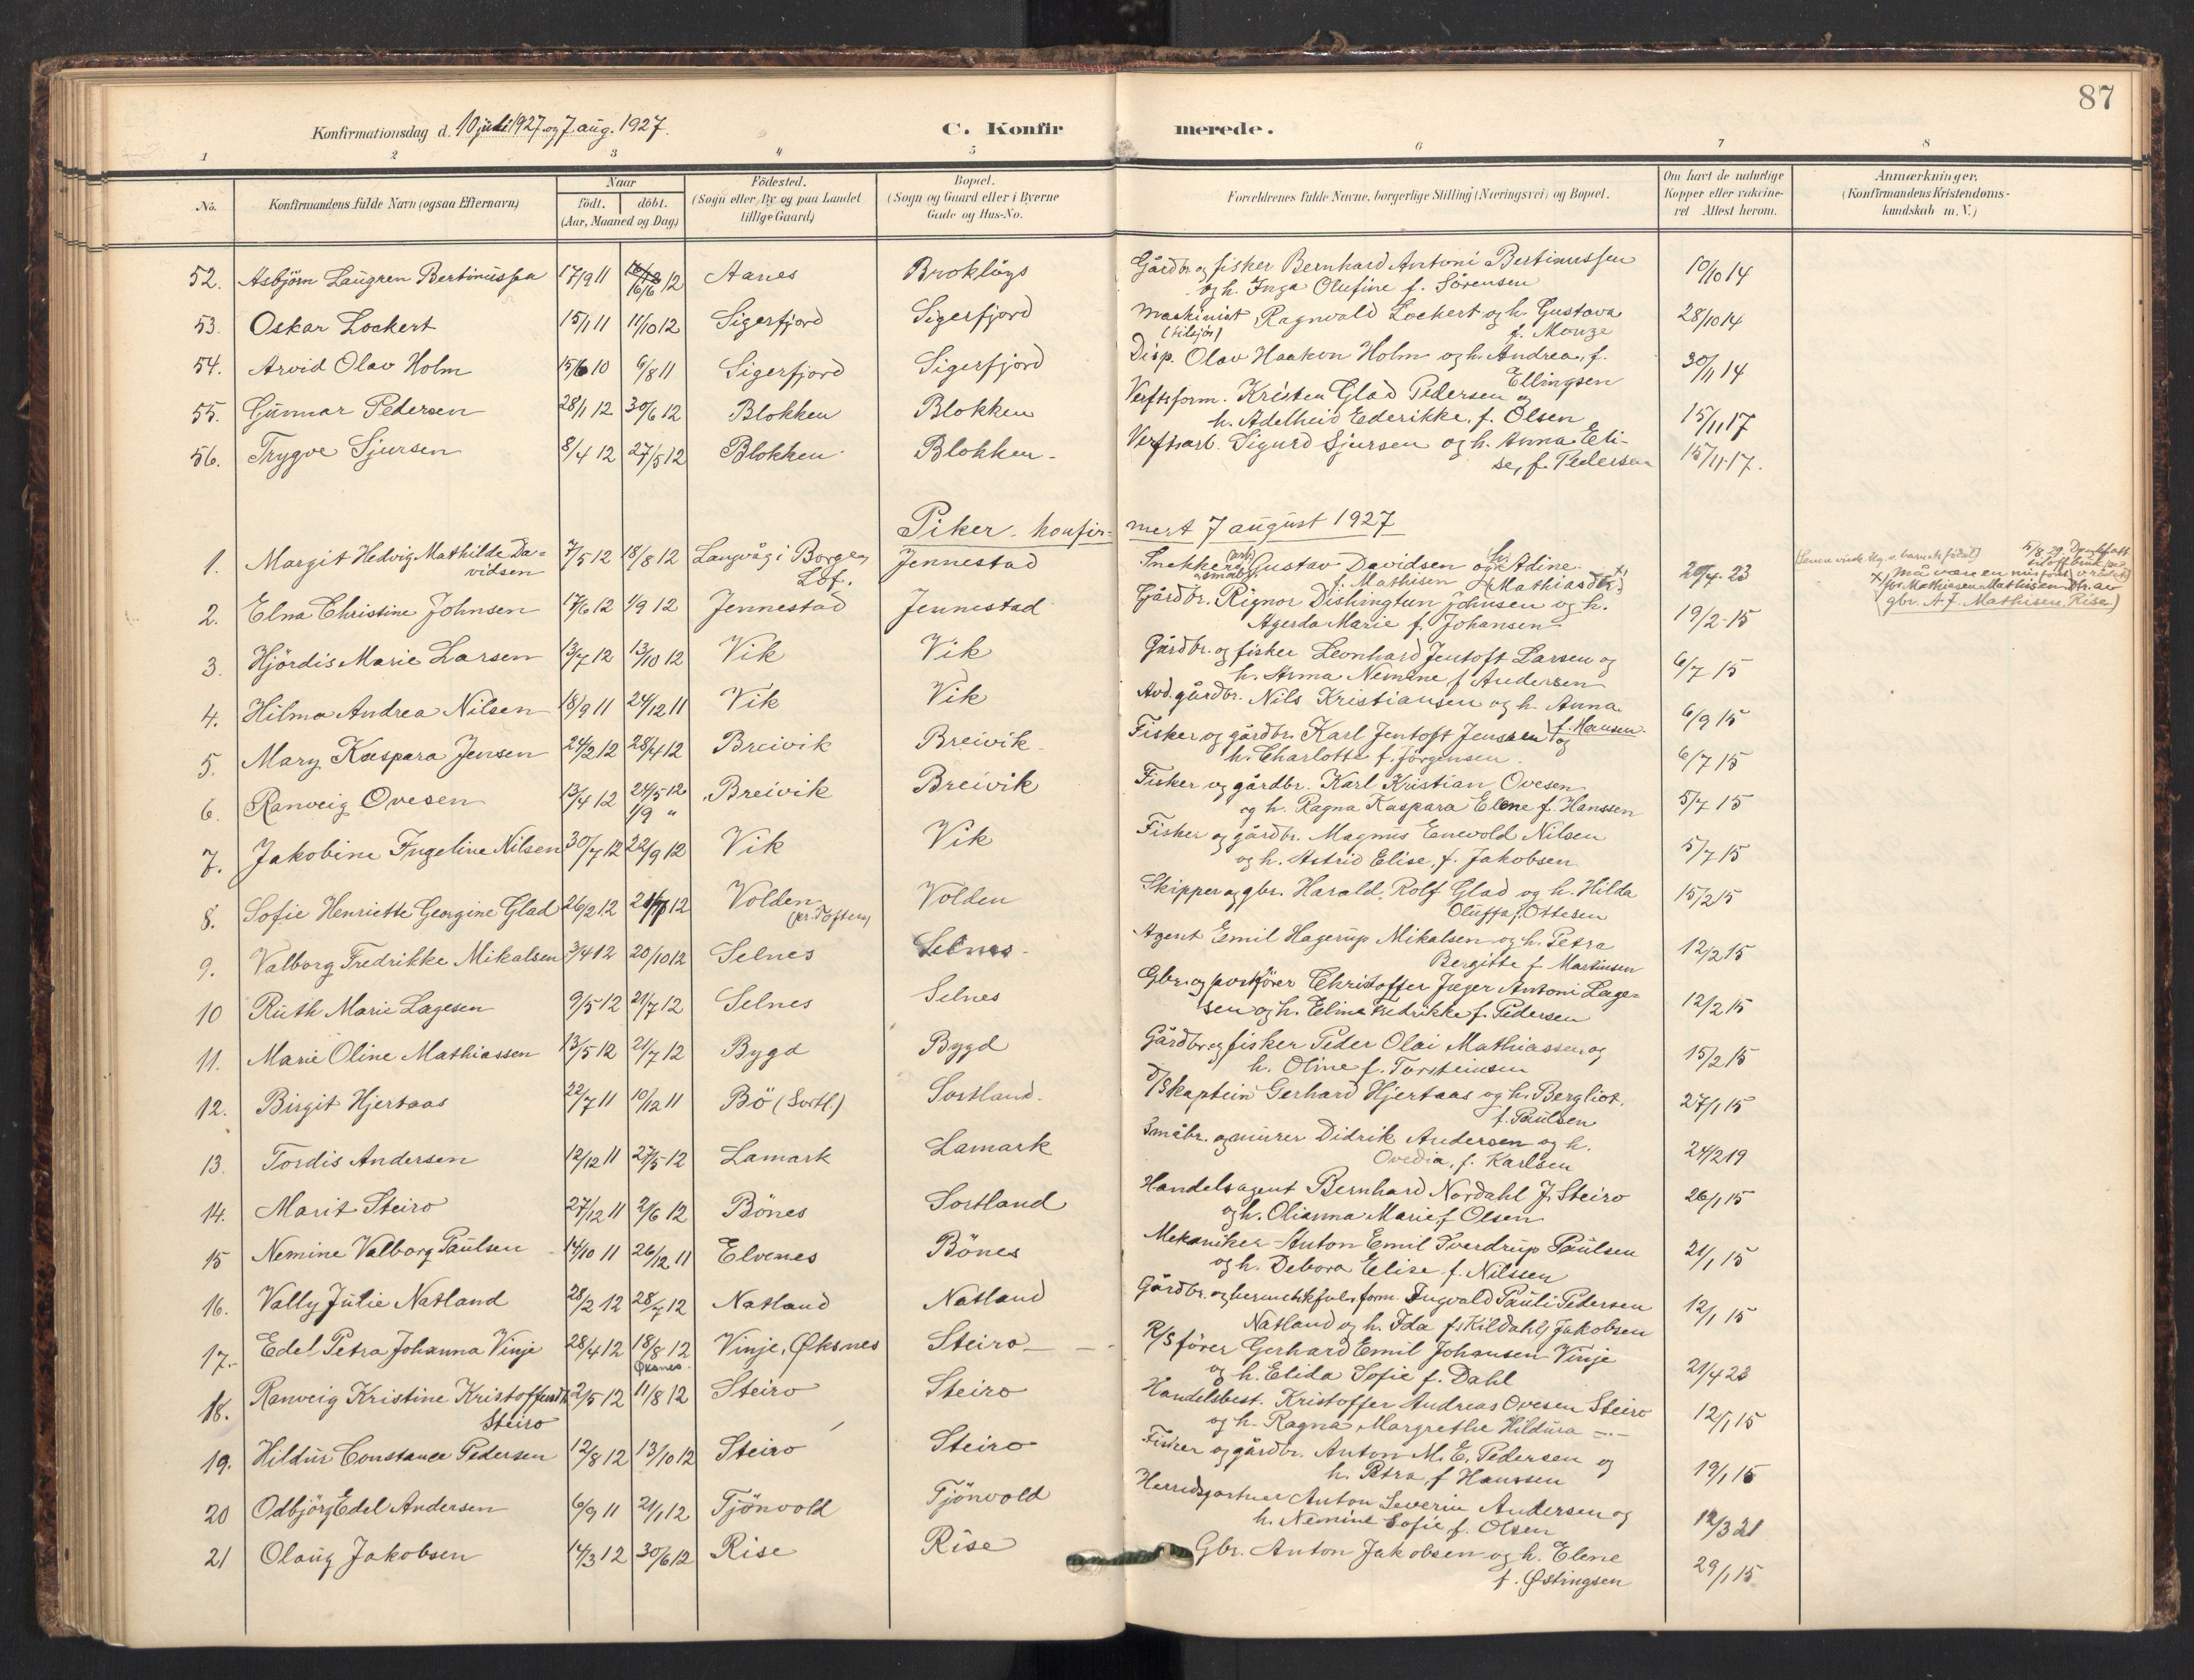 87
Konfirmationsdag d. 10 juli 1927 og 7 aug. 1927.
C. Konfirmerede.
1 2 3 4 5 6 7 8
No.
Konfirmandens fulde Navn (ogsaa Efternavn)
Naar
födt. döbt.
(Aar, Maaned og Dag)
Födested.
(Sogn eller By og paa Landet
tillige Gaard)
Bopæl.
(Sogn og Gaard eller i Byerne
Gade og Hus-No.
Forældrenes fulde Navne, borgerlige Stilling (Næringsvei) og Bopæl.
Om havt de naturlige
Kopper eller vaksine-
ret Attest herom.
Anmærkninger.
(Konfirmandens Kristendoms-
kundskab m. V.)
52. Asbjörn Laugren Bertinussen 17/9 11 16/6 12 Aanes Broklöys Gårdbr. og fisker Bernhard Antoni Bertinussen 10/10 14
og h. Inga Olufine f. Sörensen
53. Oskar Lockert 15/1 11 11/10 12 Sigerfjord Sigerfjord Maskinist Ragnvald Lockert og h. Gustava 28/10 14
(tilsjøs) f. Monze
54. Arvid Olav Holm 15/6 10 6/8 11 Sigerfjord Sigerfjord Disp. Olav Haakon Holm og h. Andrea, f. 30/11 14
Ellingsen
55. Gunnar Pedersen 28/1 12 30/6 12 Blokken Blokken Verftsform. Kristen Glad Pedersen og 15/11 17
h. Adelheid Ederikke, f. Olsen
56. Trygve Sjursen 8/4 12 27/5 12 Blokken Blokken Verftsarb. Sigurd Sjursen og h. Anna Eli- 15/11 17.
se, f. Pedersen
Piker konfirmert 7 august 1927
1. Margit Hedvig Mathilde Da- 7/5 12 18/8 12 Langvåg i Borge, Jennestad Snekker Gustav Davidsen og h. Adine 20/4 23
vidsen Lof. f. Mathisen (Mathiasdtr.) x)
x) Må være en
for Mathiasen Mathisen dtr. av
gbr. A. J. Mathisen, Rise)
2. Elna Christine Johnsen 17/6 12 1/9 12 Jennestad Jennestad Gårdbr. Rignor Dishingtun Johnsen og h. 19/2 15
Agerda Marie f. Johansen
3. Hjördis Marie Larsen 13/7 12 13/10 12 Vik Vik Gårdbr. og fisker Leonhard Jentoft Larsen og 6/7 15
h. Anna Nemine f. Andersen
4. Hilma Andrea Nilsen 18/9 11 24/12 11 Vik Vik Avd. gårdbr. Nils Kristiansen og h. Anna 6/9 15
f. Hansen
5. Mary Kaspara Jensen 24/2 12 28/4 12 Breivik Breivik Fisker og gårdbr. Karl Jentoft Jenssen og 6/7 15
h. Charlotte f. Jörgensen.
6. Ranveig Ovesen 13/4 12 24/5 12 Breivik Breivik Fisker og gårdbr. Karl Kristian Ovesen 5/7 15
1/9 " og h. Ragna Kaspara Elene f. Hanssen
7. Jakobine Ingeline Nilsen 30/7 12 22/9 12 Vik Vik Fisker og gårdbr. Magnus Enevold Nilsen 5/7 15
og h. Astrid Elise, f. Jakobsen
8. Sofie Henriette Georgine Glad 26/2 12 21/7 12 Volden Volden Skipper og gbr. Harald Rolf Glad og h. Hilda 15/2 15
(pr. Toften) Oluffa f. Ottesen
9. Valborg Fredrikke Mikalsen 3/4 12 20/10 12 Selnes Selnes Agent Emil Hagerup Mikalsen og h. Petra 12/2 15
Bergitte f. Martinsen
10 Ruth Marie Lagesen 9/5 12 21/7 12 Selnes Selnes Gbr. og postförer Christoffer Jæger Antoni Lage- 12/2 15
sen og h. Elina Fredrikke f. Pedersen
11. Marie Oline Mathiassen 13/5 12 21/7 12 Bygd Bygd Gårdbr. og fisker Peder Olai Mathiassen og 15/2 15
h. Oline f. Torsteinsen
12. Birgit Hjertaas 22/7 11 10/12 11 Bö (Sortl.) Sortland D/Skaptein Gerhard Hjertaas og h. Bergliot, 27/1 15
f. Paulsen
13. Tordis Andersen 12/12 11 27/5 12 Lamark Lamark Småbr. og murer Didrik Andersen og h. 24/2 19
Ovedia, f. Karlsen
14. Marit Steiro 27/12 11 2/6 12 Bönes Sortland Handelsagent Bernhard Nordahl J. Steiro 26/1 15
og h. Olianna Marie f. Olsen
15 Nemine Valborg Paulsen 14/10 11 26/12 11 Elvenes Bönes Mekaniker Anton Emil Sverdrup Paulsen 21/1 15
og h. Debora Elise f. Nilssen
16. Vally Julie Natland 28/2 12 28/7 12 Natland Natland Gårdbr. og hermetikfabr. form. Ingvald Pauli Pedersen 12/1 15
Natland og h. Ida f. (Kildahl) Jakobsen
17. Edel Petra Johanna Vinje 28/4 12 18/8 12 Vinje, Øksnes Steiro R/S förer Gerhard Emil Johansen Vinje 21/4 23
Øksnes. og h. Elida Sofie f. Dahl
18. Ranveig Kristine Kristoffersdtr. 2/5 12 11/8 12 Steiro Steiro Handelsbest. Kristoffer Andreas Ovesen Steiro 12/1 15
Steiro og h. Ragna Margrethe Hildura
19. Hildur Constance Pedersen 12/8 12 13/10 12 Steiro Steiro Fisker og gårdbr. Anton M. E. Pedersen og 19/1 15
h. Petra, f. Hanssen
20 Odbjörg Edel Andersen 6/9 11 21/1 12 Tjönvold Tjönvold Herredsgartner Anton Severin Andersen og 12/3 21
h. Nemine Sofie f. Olsen
21 Olaug Jakobsen 14/3 12 30/6 12 Rise Rise Gbr. Anton Jakobsen og h. Elene 29/1 15
f. Østingsen